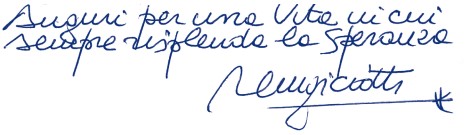 Auguri per una Vita in cui
sempre risplenda la Speranza